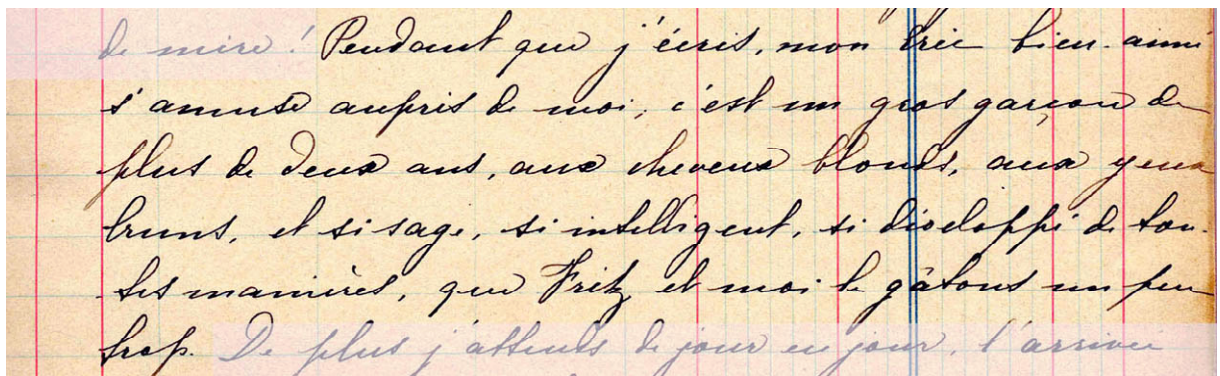 de mère ! Pendant que j'écris, mon Eric bien-aimé
s'amuse auprès de moi; c'est un gros garçon de
plus de deux ans, aux cheveux blonds, aux yeux
bruns, et si sage, si intelligent, si développé de tou-
tes manières, que Fritz et moi le gâtons un peu
trop. De plus j'attends de jour en jour, l'arrivée